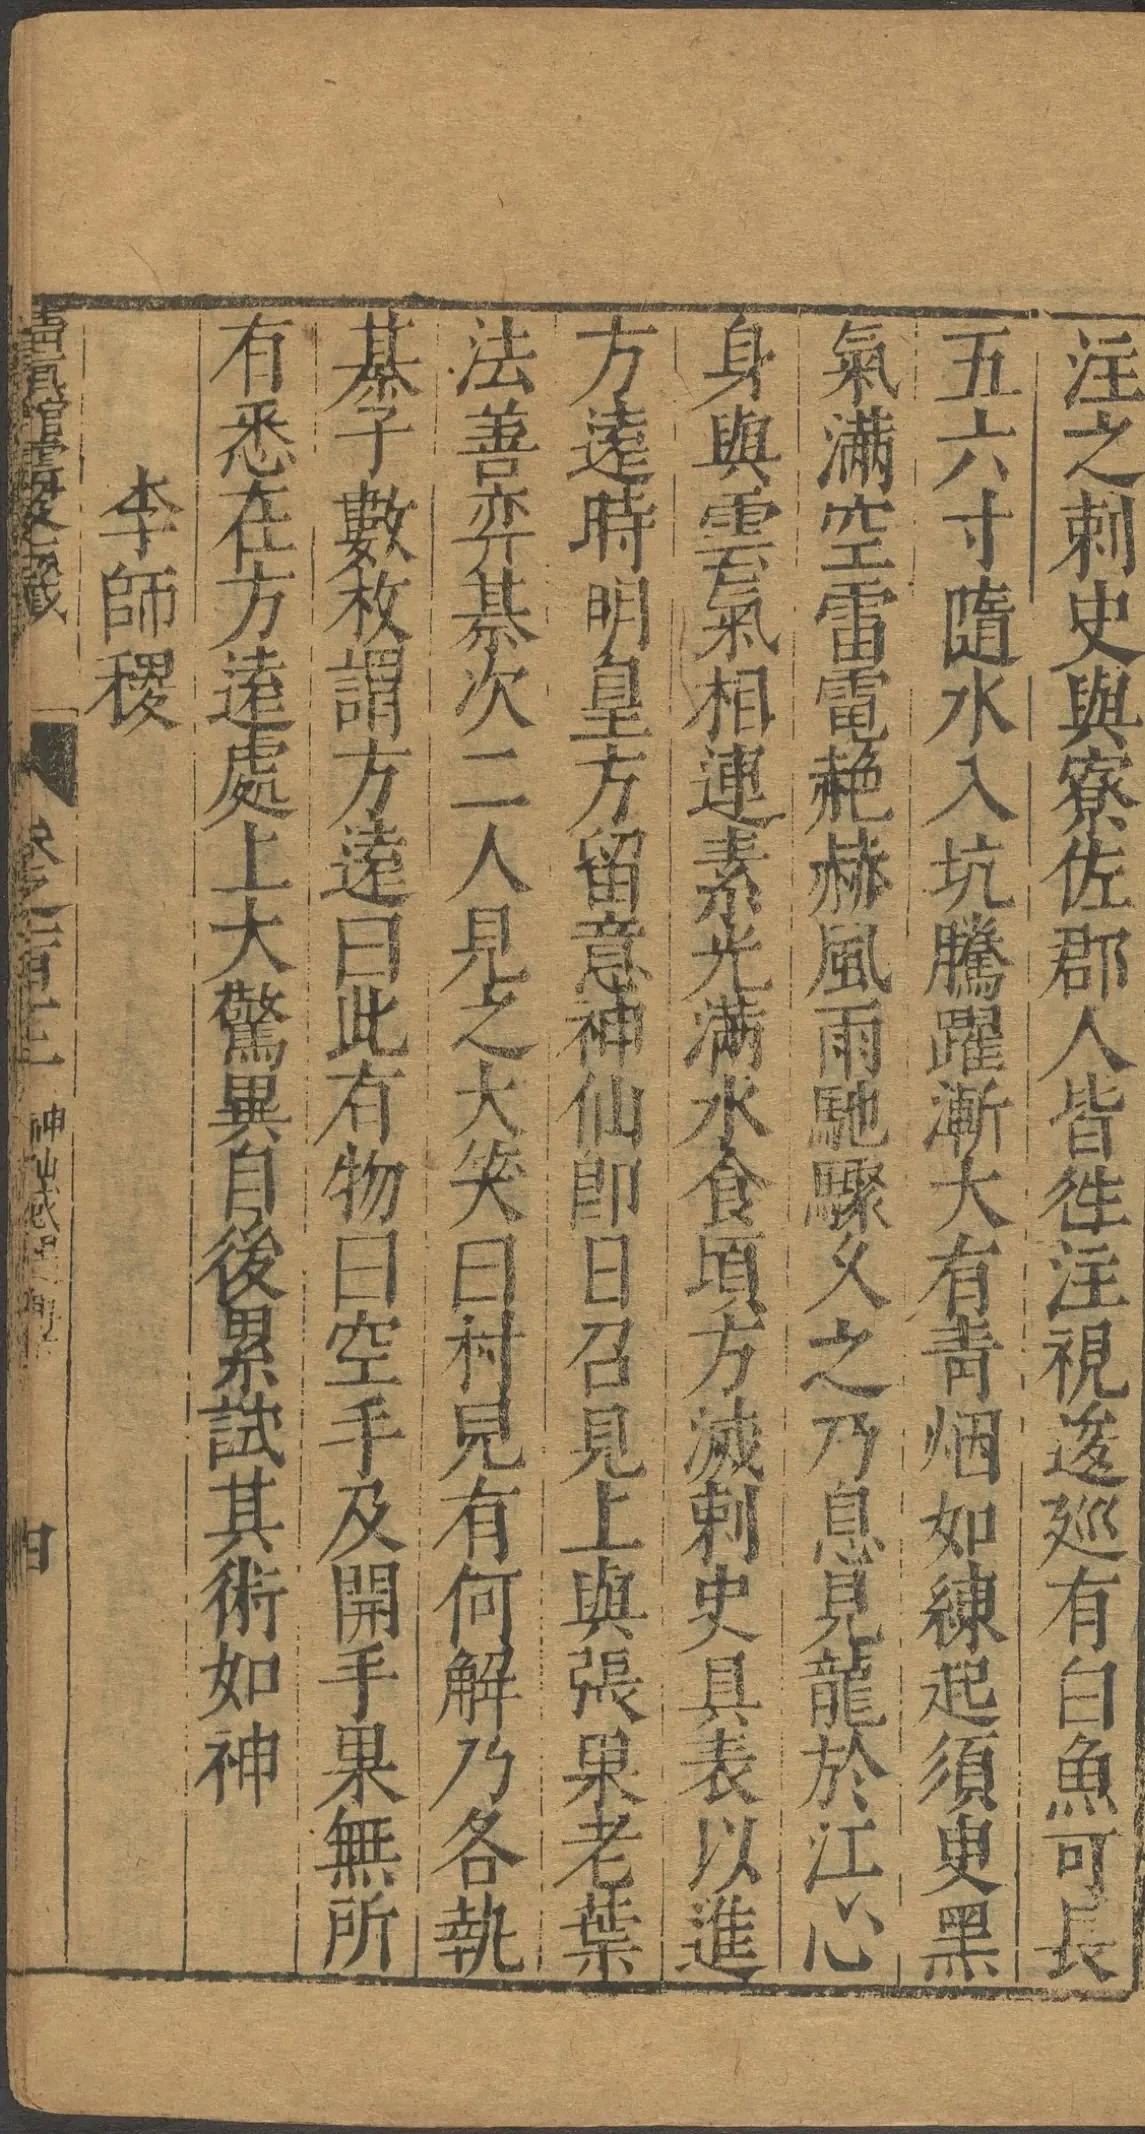 注之刺史與寮佐郡人皆徃注視逡廵有白魚可長
五六寸隨水入坑騰躍漸大有靑烟如練起須臾黑
氣滿空雷電赩赫風雨馳驟久之乃息見龍於江心
身與雲氣相連素光滿水食頃方滅刺史具表以進
方遠時明皇方留意神仙即日召見上與張果老葉
法善弈棊次二人見之大笑曰村兒有何解乃各執
棊子數枚謂方遠曰此有物曰空手及開手果無所
有悉在方遠處上大驚異自後累試其術如神
李師稷
卷之一百三 神仙感遇 四